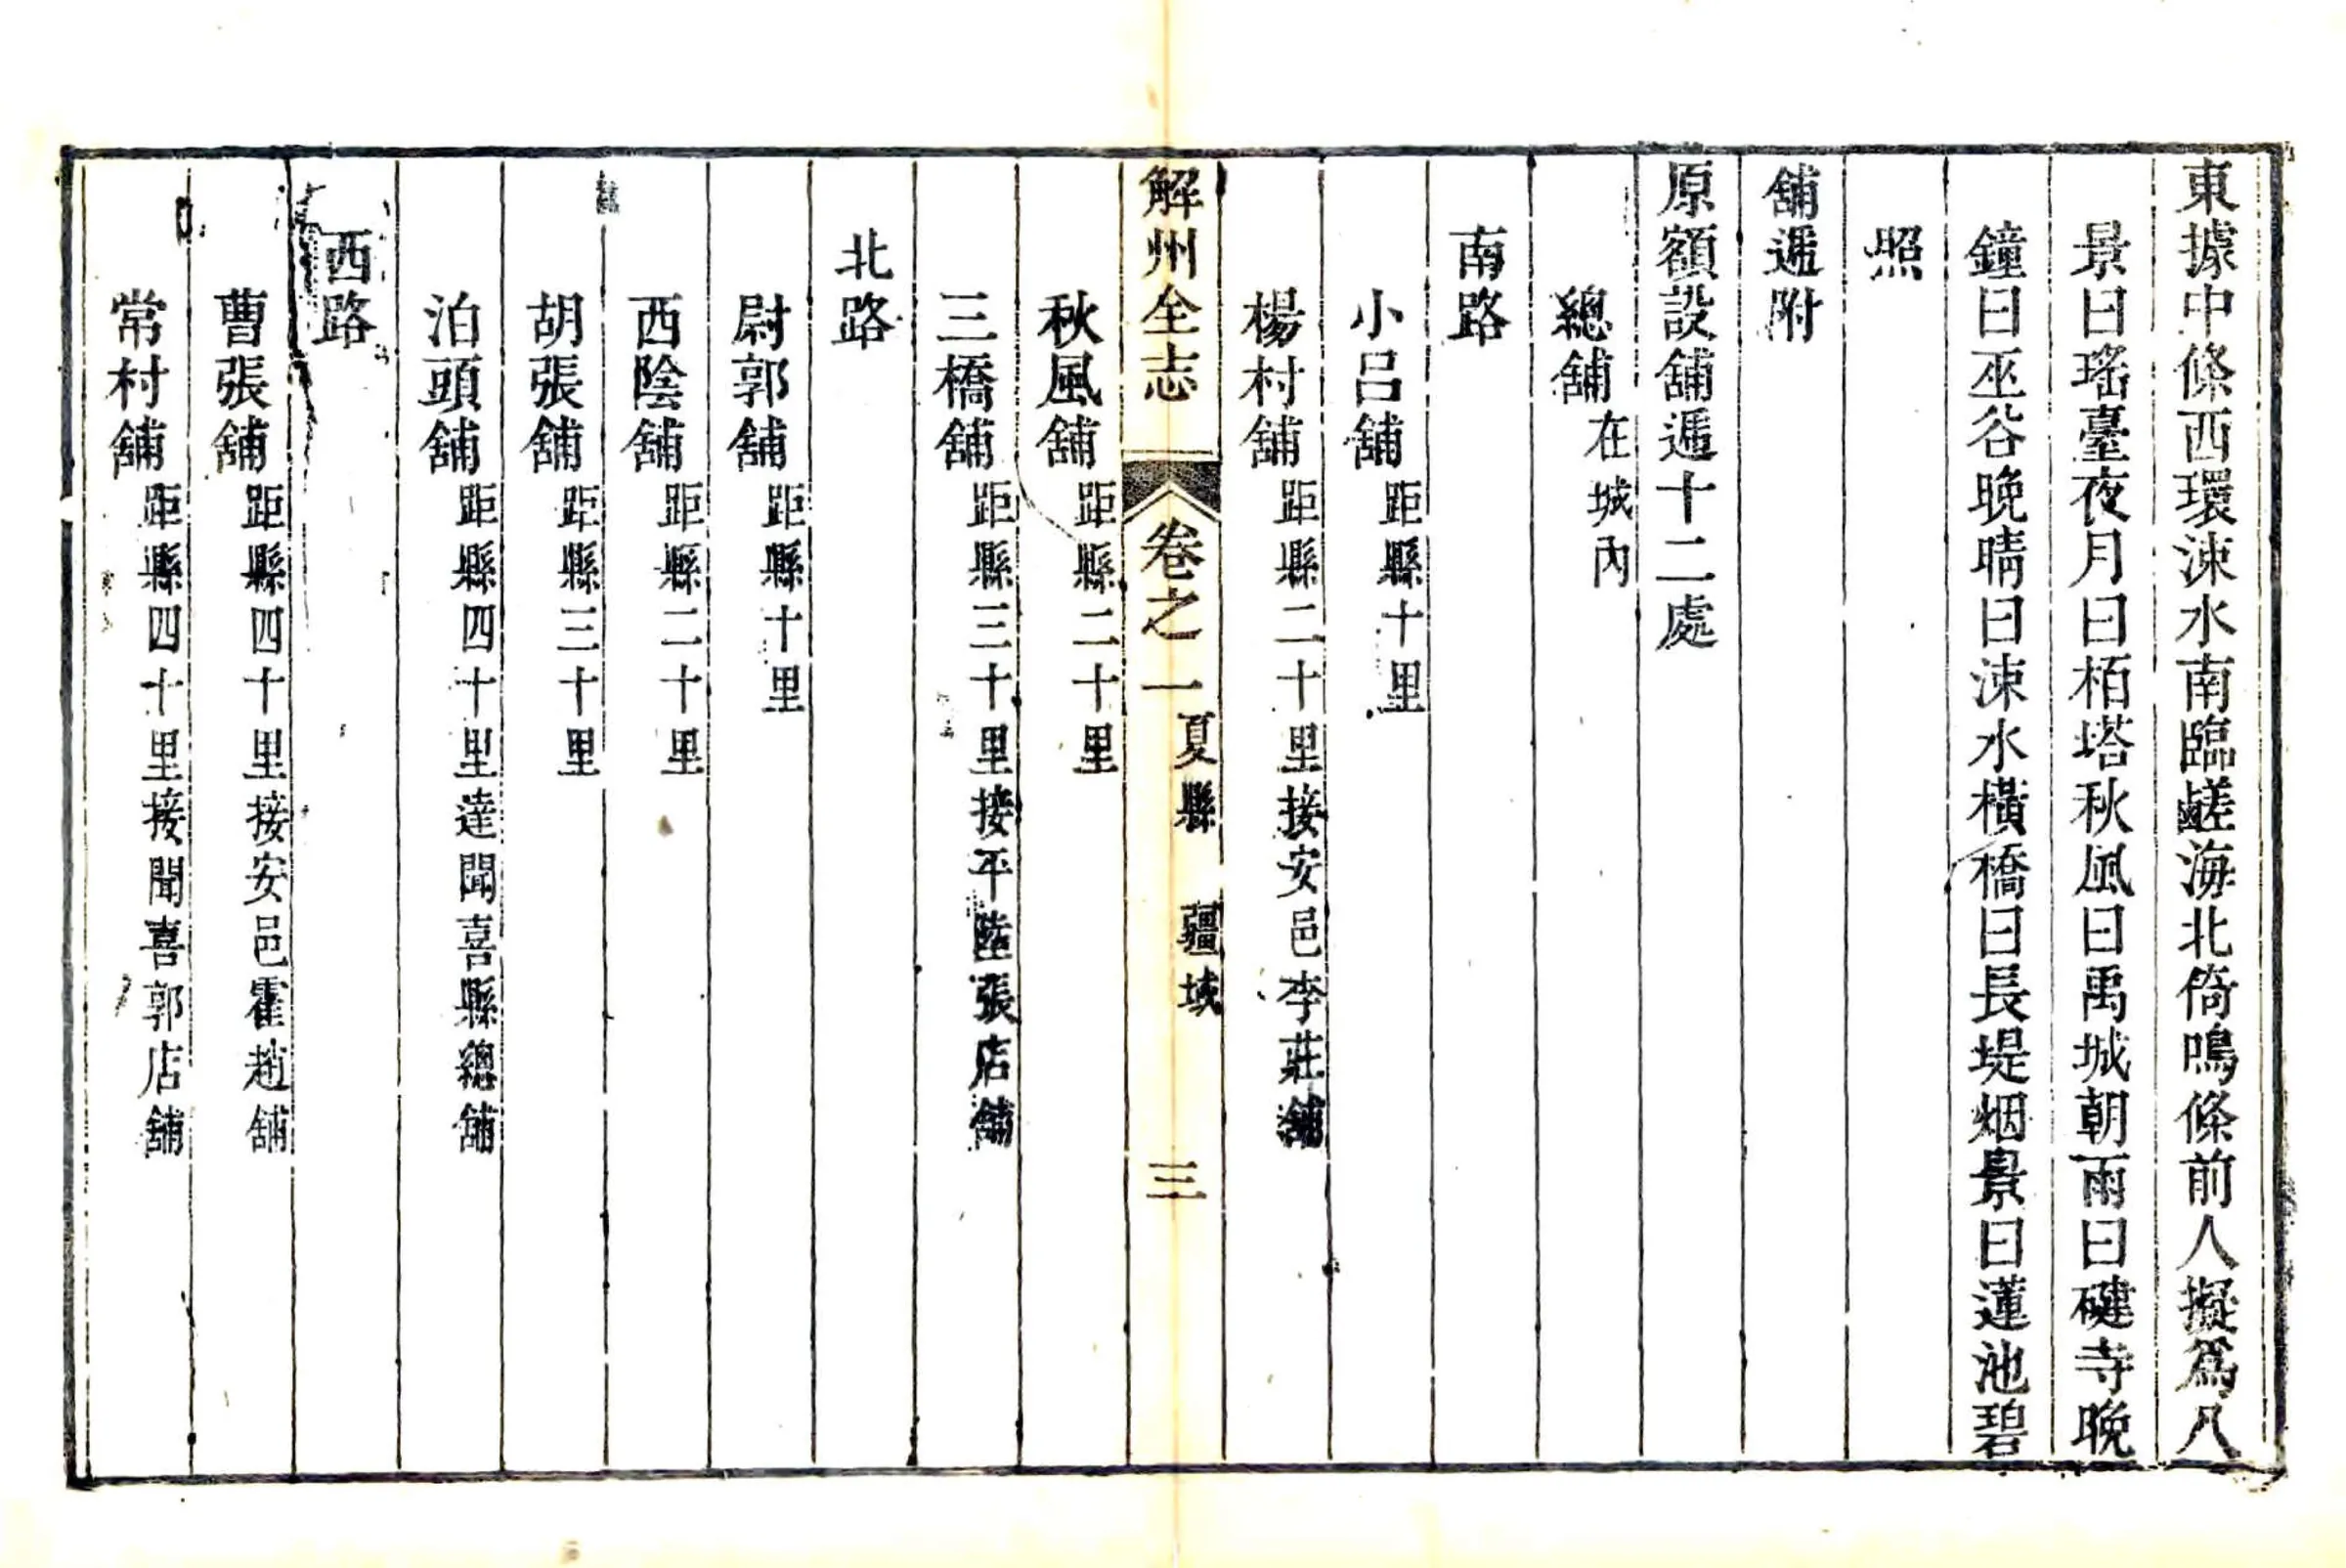 東據中條西環涑水南臨鹺海北倚鳴條前人擬爲八
景曰瑤臺夜月曰栢塔秋風曰禹城朝雨曰礆寺晚
鐘曰巫谷晚晴曰涑水橫橋曰長堤烟景曰蓮池碧
照
舖遞附
原額設舖遞十二處
總舖在城內
南路
小呂舖距縣十里
楊村舖距縣二十里接安邑李莊舖
解州全志 卷之一 夏縣 疆域 三
秋風舖距縣二十里
三橋舖距縣三十里接平陸張店舖
北路
尉郭舖距縣十里
西陰舖距縣二十里
胡張舖距縣三十里
泊頭舖距縣四十里達聞喜縣總舖
西路
曹張舖距縣四十里接安邑霍趙舖
常村舖距縣四十里接聞喜郭店舖